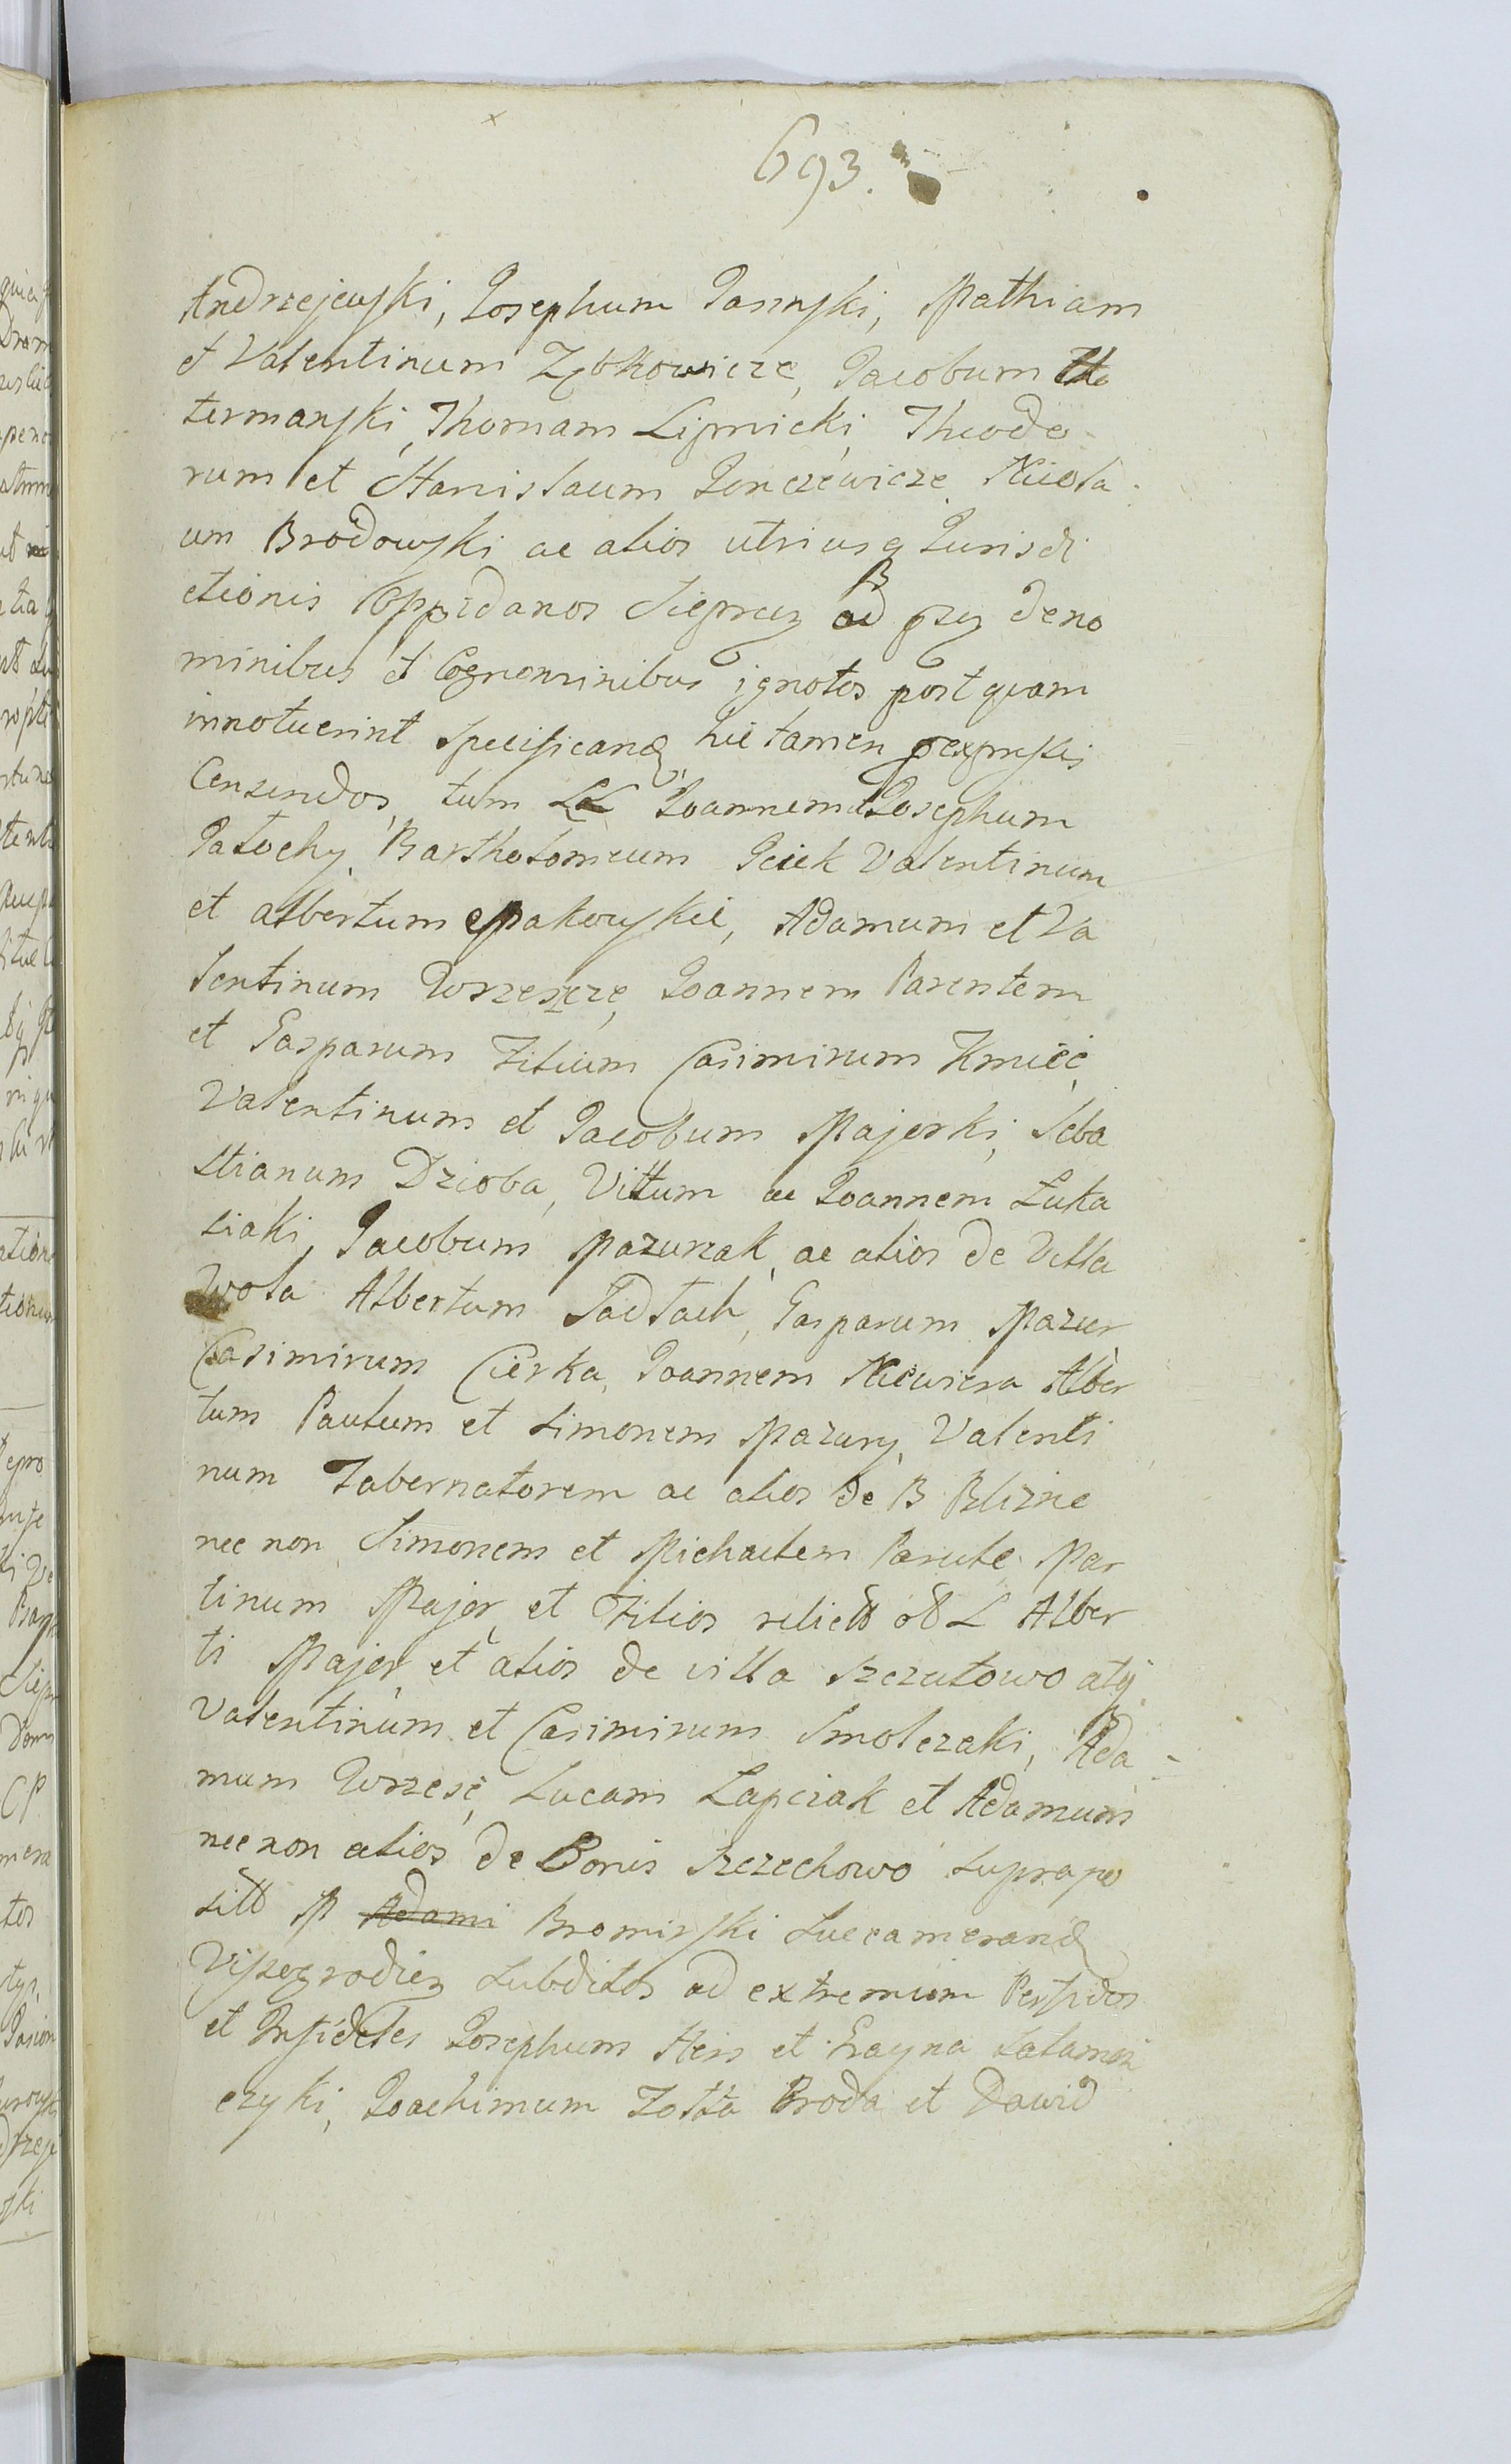 693.
Andrzejewski, Josephum Jasinski, Mathiam
et Valentinum Ząbkowicze, Jacobum Ha
termanski, Thomam Lipnicki, Theodo-
rum et Stanislaum Jenczewicze, Nicola
um Brodowski ac alios utriusq Jurisdi
ctionis Oppidanos Sieprcz ad psz deno
minibus et Cognominibus ignotos postquam
innotuerint specificand, hic tamen p expressis
Censendos, tum LL Joannem et Josephum
Patochy, Bartholomeum Jeick Valentinum
et Albertum Makowskie, Adamum et Va
lentinum Wrzeszcze, Joannem Parentem
et Gasparum Filium Casimirum Kmieć,
Valentinum et Jacobum Majerki, Seba
stianum Dzioba, Vittum ac Joannem Łuka
siaki, Jacobum Mazurzak, ac alios de Villa
Wola Albertum Gasparum Mazur
Casimirum Cierka, Joannem Niewiera Alber
tum Paulum et Simonem Mazury, Valenti
num Tabernatorem ac alios de B Blizne
nec non Simonem et Michaelem Parule, Mar
tinum Majer, et Filios relictt olb L Alber
ti Majer, et alios de villa Szczutowo atq
Valentinum et Casimirum Smolczaki, Ada-
mum Wrzesz, Lucam Lapciak et Adamum
nec non alios de Bonis Szczechowo suprapo
sitt M Adami Bromirski Succamerand
Vissogrodien Subditos ad extremum Perfidos
et Infideles Josephum Hers et Grayna Salamon
czyki, Joachimum Zołta Broda et Dawid